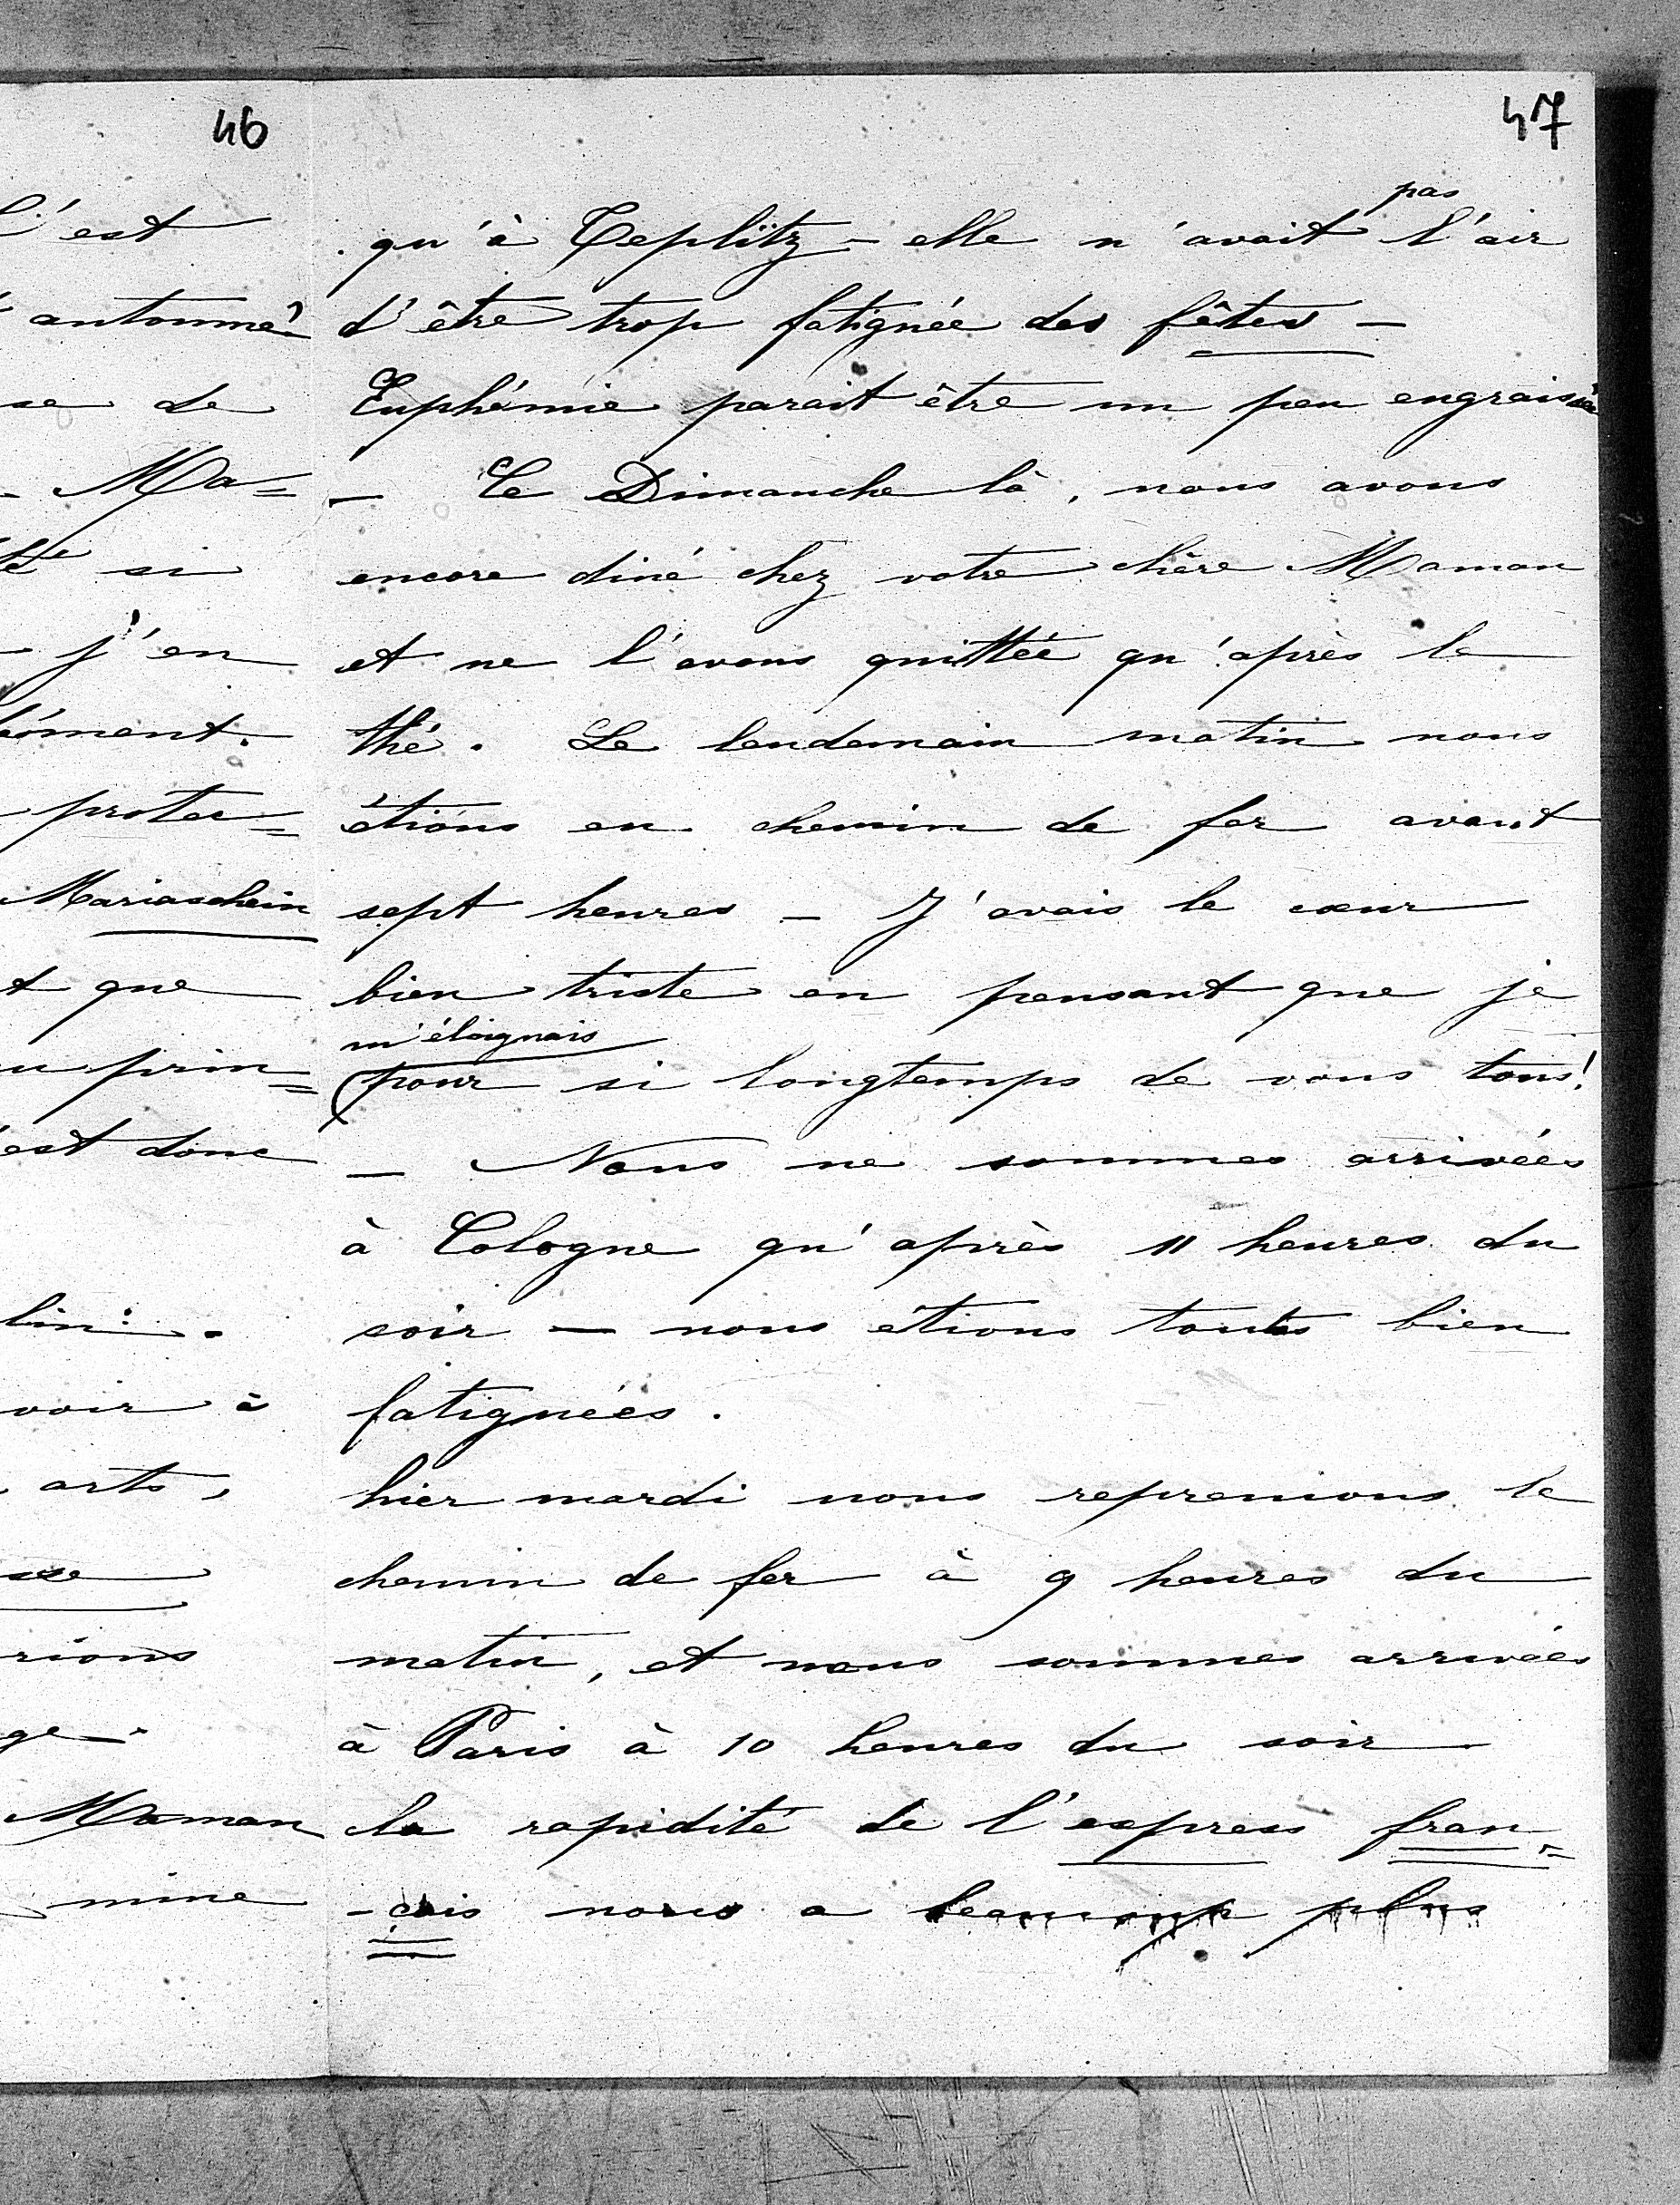 46
L'est
antonmê
se de
- Ma=
té si
- j'en
ément.
protec=
Mariaschein
t que
u prin=
est donc
lin:.
voir à
arts,
sse
rions
ge.
Maman
mine
47
pas
qu'à Teplitz - elle n'avait l'air
d'être trop fatignée des fêtes -
Euphémie parait être un peu engraissée
- Ce Dimanche là, nous avons
encore diné chez votre chère Maman
et ne l'avons quittée qu'après le
thé. Le lendemain matin nous
étions en chemin de fer avant
sept heures - J'avais le cœur
bien triste en pensant que je
m'éloignais
(pour si longtemps de vous tous!
- Nous ne sommes arrivées
à Cologne qu'après 11 heures du
soir - nous étions touts bien
fatignées.
hier mardi nous reprenions le
chemin de fer à 9 heures du
matin, et nous sommes arrivées
à Paris à 10 heures du soir -
la rapidité de l'express fran=
-çais nous a beaucoup plus